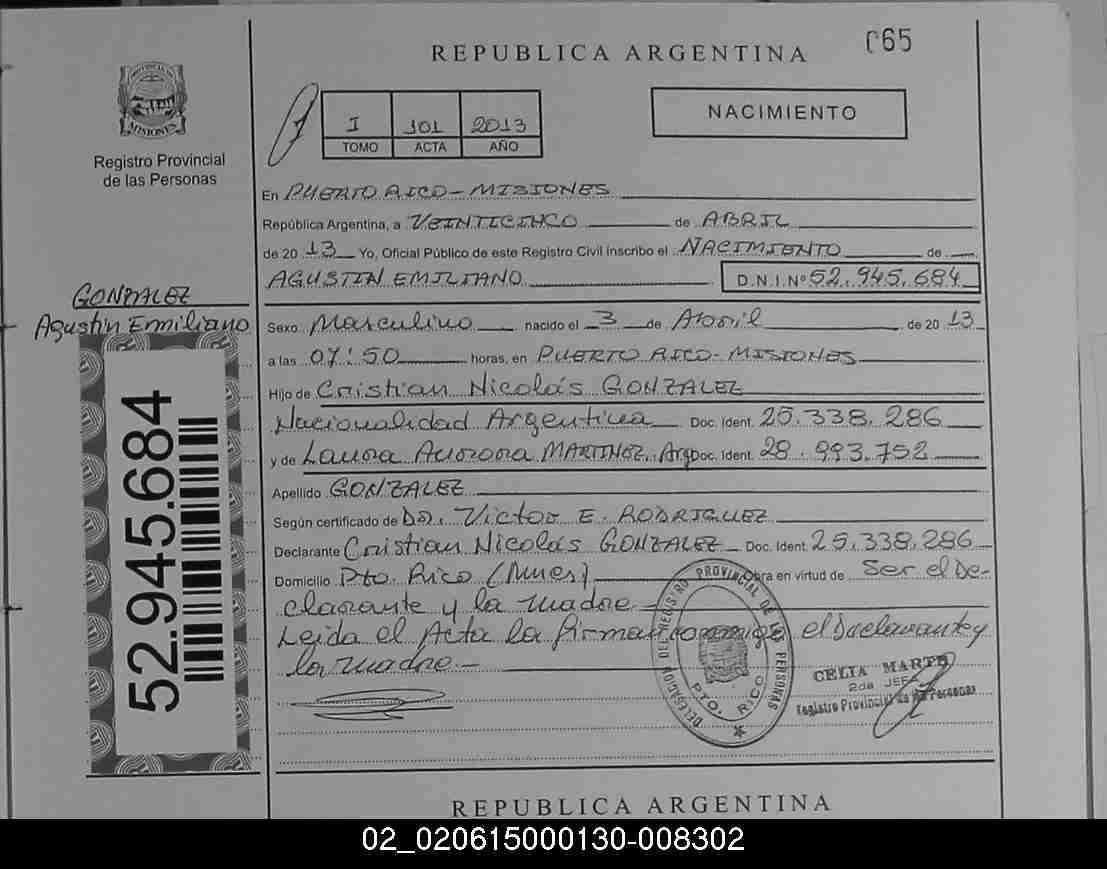 065
REPUBLICA ARGENTINA
PROVINCIA DE
MISIONES
Registro Provincial
de las Personas
I 101 2013
TOMO ACTA AÑO
NACIMIENTO
En PUERTO RICO - MISIONES
República Argentina, a VEINTICINCO de ABRIL
de 20 13 Yo, Oficial Público de este Registro Civil inscribo el NACIMIENTO de
AGUSTIN EMILIANO D.N.I. Nº 52.945.684
GONZALEZ
Agustin Emiliano
Sexo Masculino nacido el 3 de Abril de 20 13
a las 07:50 horas, en PUERTO RICO - MISIONES
Hijo de Cristian Nicolás GONZALEZ
Nacionalidad Argentina Doc. Ident. 25.338.286
y de Laura Aurora MARTINEZ, Arg Doc. Ident. 28.993.752
Apellido GONZALEZ
Según certificado de Dr. Victor E. RODRIGUEZ
Declarante Cristian Nicolás GONZALEZ Doc. Ident. 25.338.286
Domicilio Pto. Rico (Mnes) Obra en virtud de Ser el De-
clarante y la madre
Leida el Acta la firman conmigo el Declarante y
la madre.-
52.945.684
DELEGACION DEL REGISTRO PROVINCIAL DE LAS PERSONAS
PTO. RICO
CELIA
2da JEFE
Registro Provincial de las Personas
REPUBLICA ARGENTINA
02_020615000130-008302